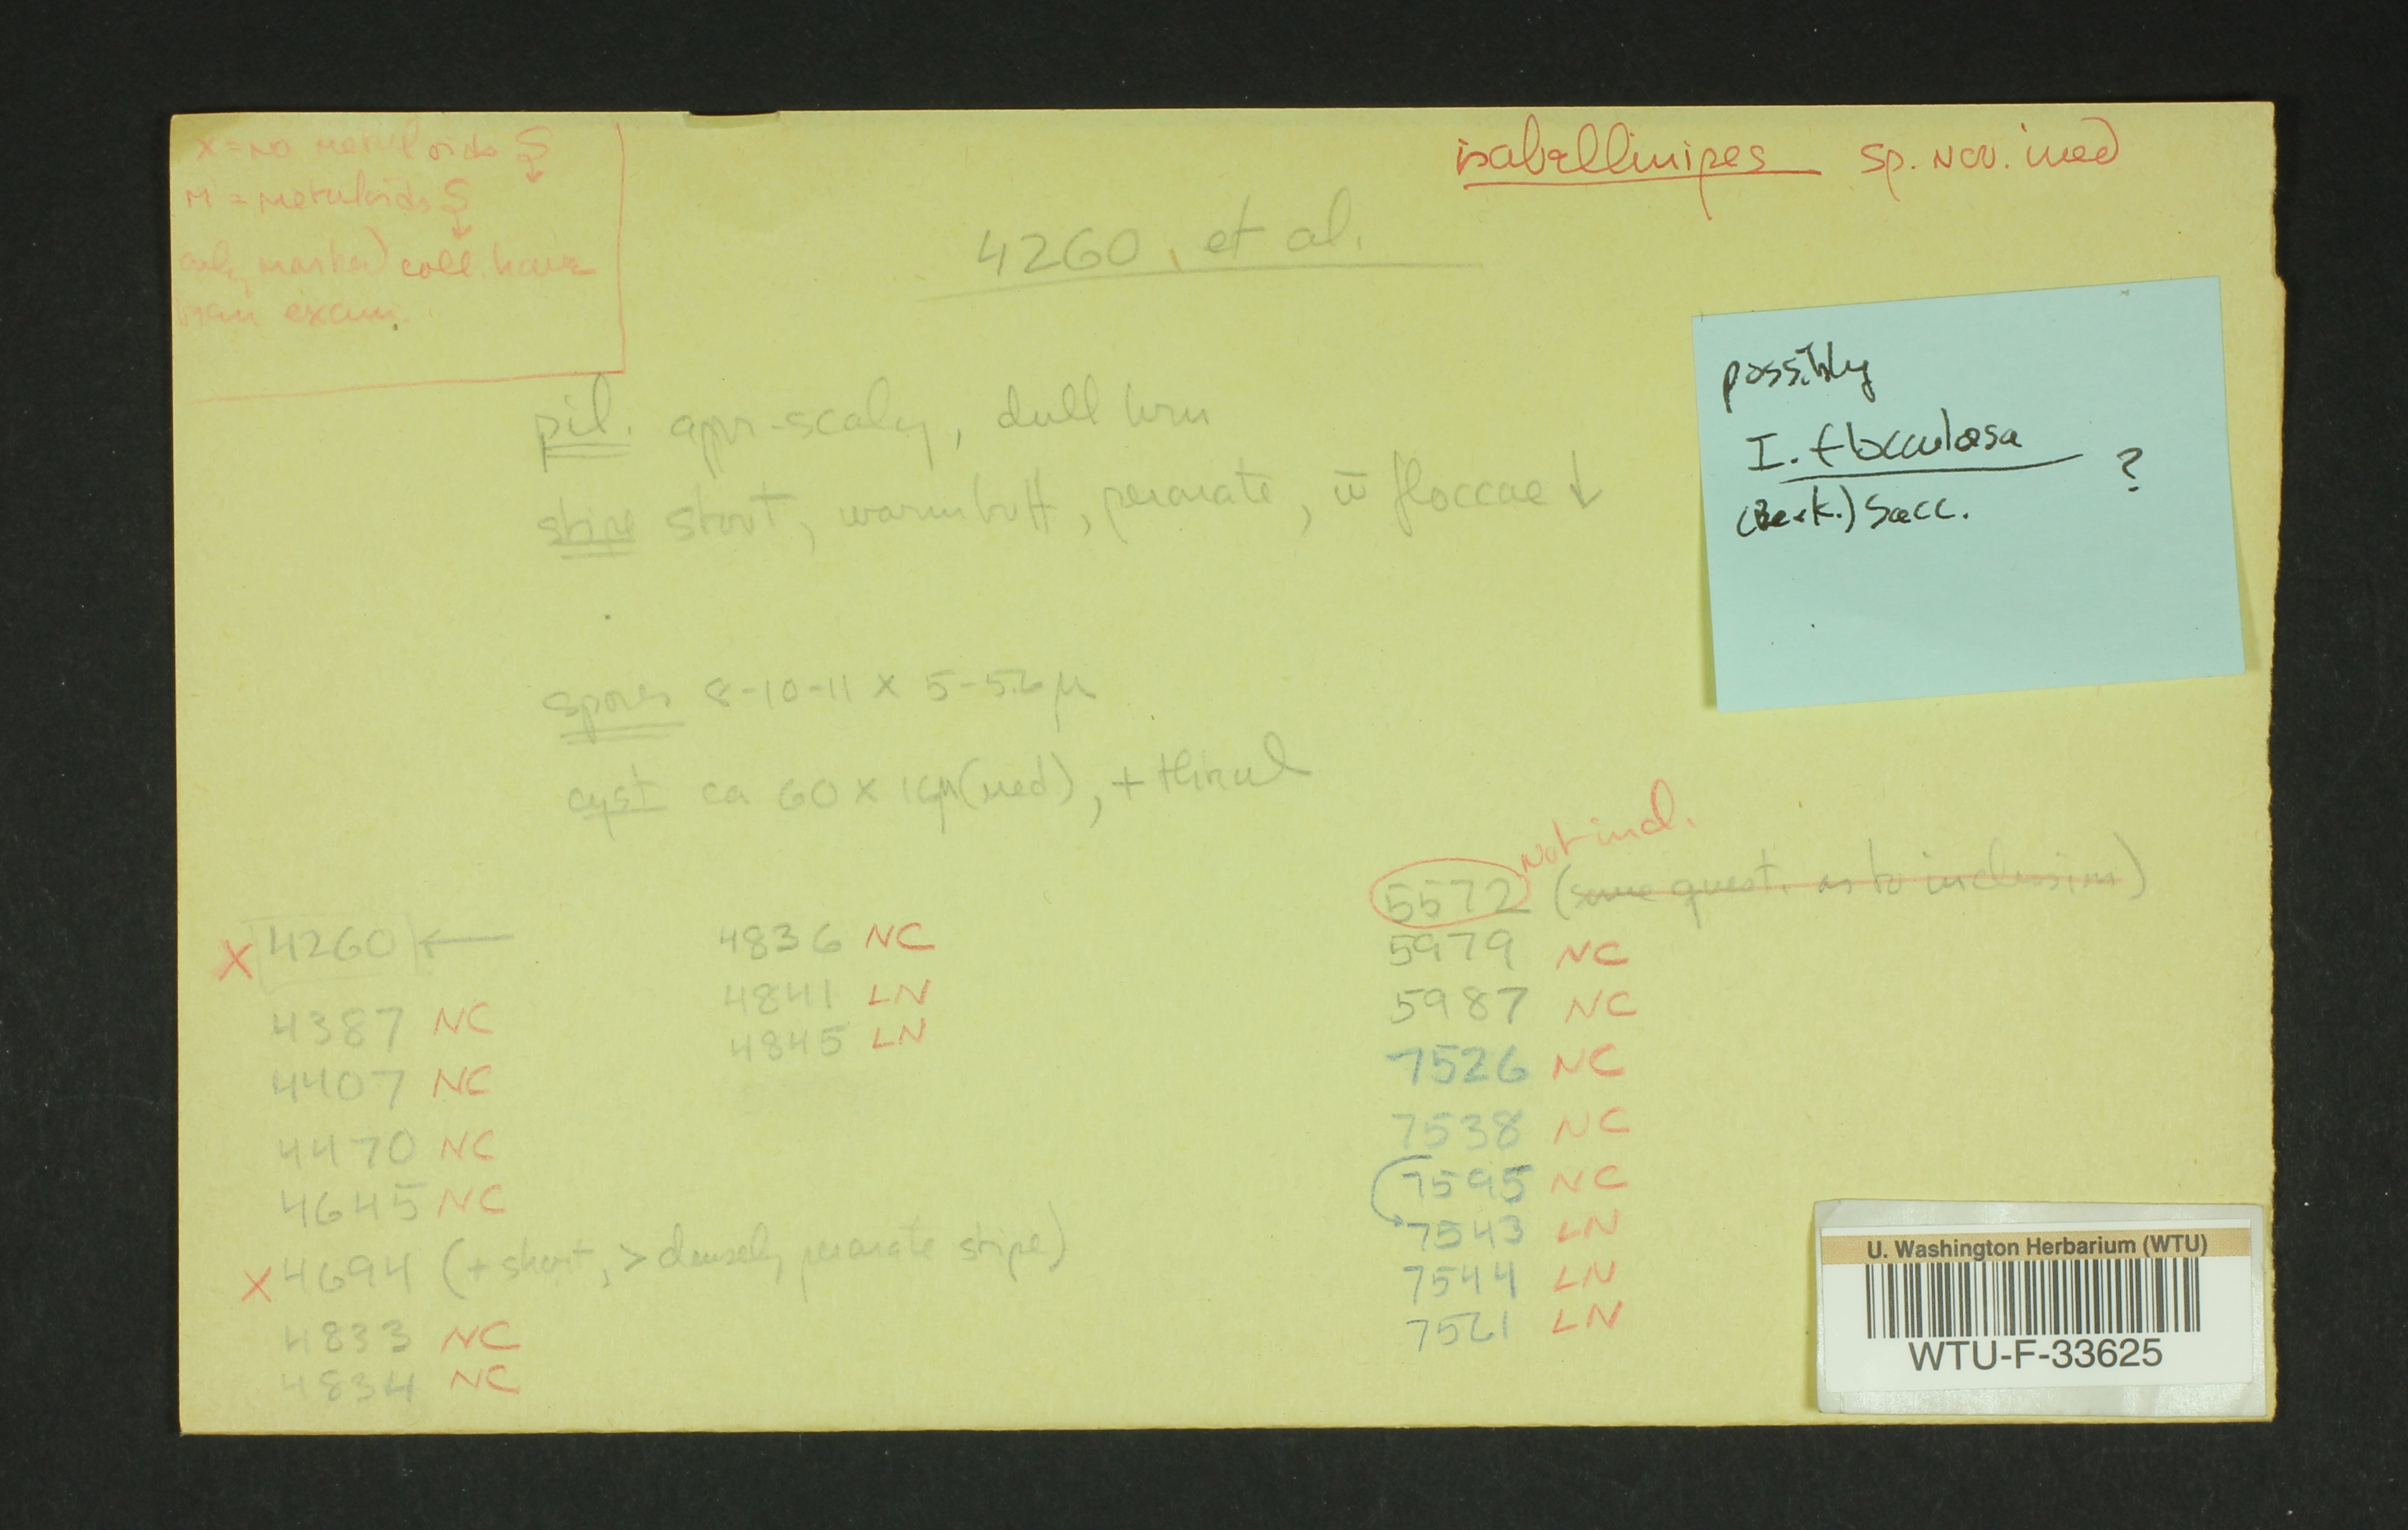 x = no metuloids S ↓
M = metuloids S ↓
only marked coll. have
been exam.
isabellinipes sp. nov. ined
4260, et al.
possibly
I. floccul​osa ?
(Berk.) Sacc.
pil. appr-scaly, dull brn
stipe stout, warm buff, peronate, w̄ floccae ↓
spores 8-10-11 x 5-5.6 µ
cyst ca 60 x 16µ (med), + thinwl
X 4260 ←
4387 NC
4407 NC
4470 NC
4645 NC
X 4694 (+ short, > densely peronate stipe)
4833 NC
4834 NC
4836 NC
4841 LN
4845 LN
Not incl.
5572 (some quest. as to inclusion)
5979 NC
5987 NC
7526 NC
7538 NC
7595 NC
7543 LN
7544 LN
7561 LN
U. Washington Herbarium (WTU)
WTU-F-33625